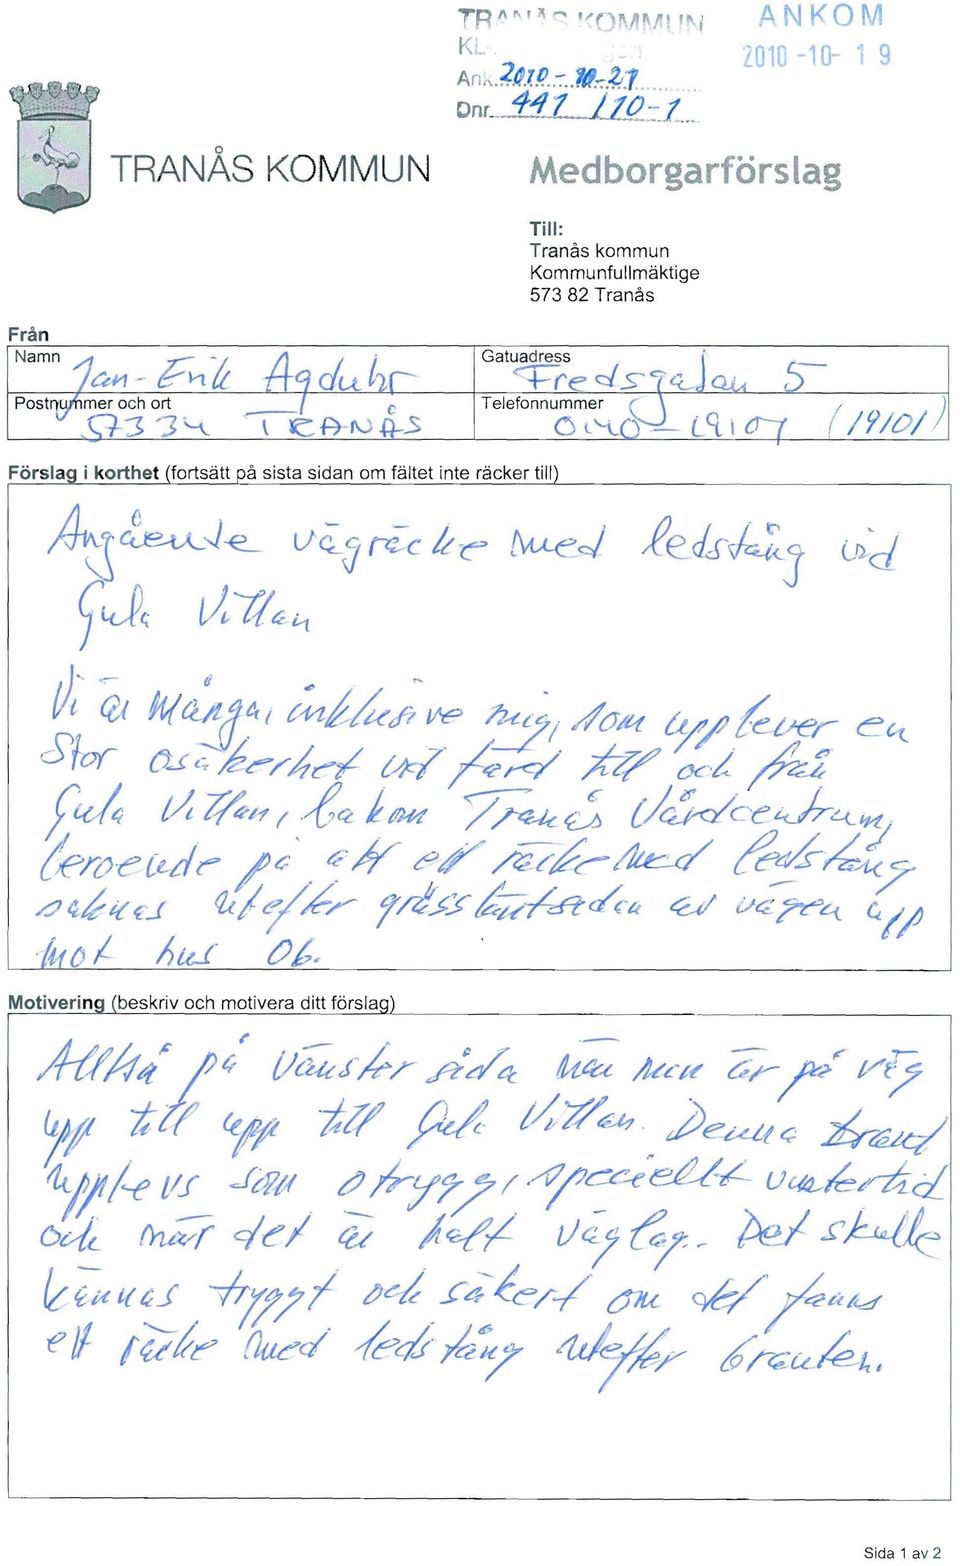 TRANÅS KOMMUN
KL-
Ank. 2010-10-21
Dnr. 441 /10-1
ANKOM
2010-10-19
TRANÅS KOMMUN
Medborgarförslag
Till:
Tranås kommun
Kommunfullmäktige
573 82 Tranås
Från
Namn Jan-Erik Agduhr
Gatuadress Fredsgatan 5
Postnummer och ort 57334 TRANÅS
Telefonnummer 0140-19107 (19101)
Förslag i korthet (fortsätt på sista sidan om fältet inte räcker till)
Angående vägräcke med ledstång vid
Gula Villan
Vi är många, inklusive mig, som upplever en
stor osäkerhet vid färd till och från
Gula Villan, bakom Tranås Vårdcentrum,
beroende på att ett räcke med ledstång
saknas utefter grässläntsidan av vägen upp
mot hus 06.
Motivering (beskriv och motivera ditt förslag)
Alltså på vänster sida när man är på väg
upp till upp till Gula Villan. Denna brant
upplevs som otrygg, speciellt vintertid
och när det är halt väglag. Det skulle
kännas tryggt och säkert om det fanns
ett räcke med ledstång utefter branten.
Sida 1 av 2